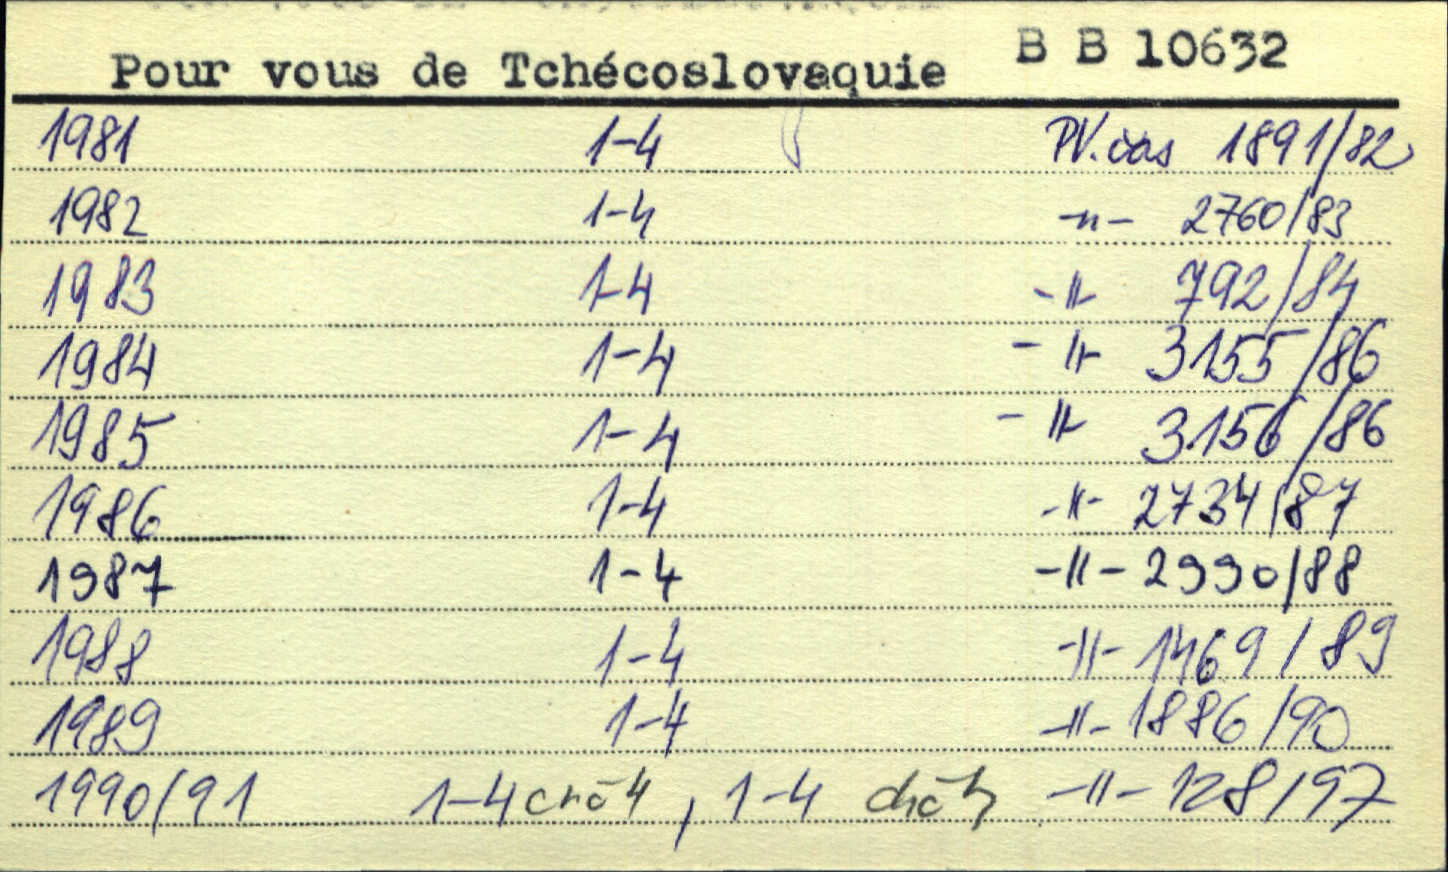 Pour vous de Tchécoslovaquie B B 10632
1981 1-4 PV. čas 1891/82
1982 1-4 -"- 2760/83
1983 1-4 -"- 792/84
1984 1-4 -"- 3155/86
1985 1-4 -"- 3156/86
1986 1-4 -"- 2734/87
1987 1-4 -"- 2990/88
1988 1-4 -"- 1469/89
1989 1-4 -"- 1886/90
1990/91 1-4 chč 4, 1-4 chč -"- 128/97